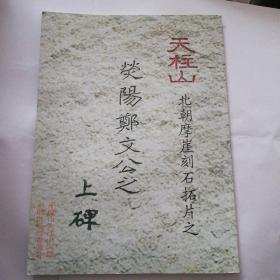 天柱山
北朝摩崖刻石拓片之
荧陽鄭文公之
上碑